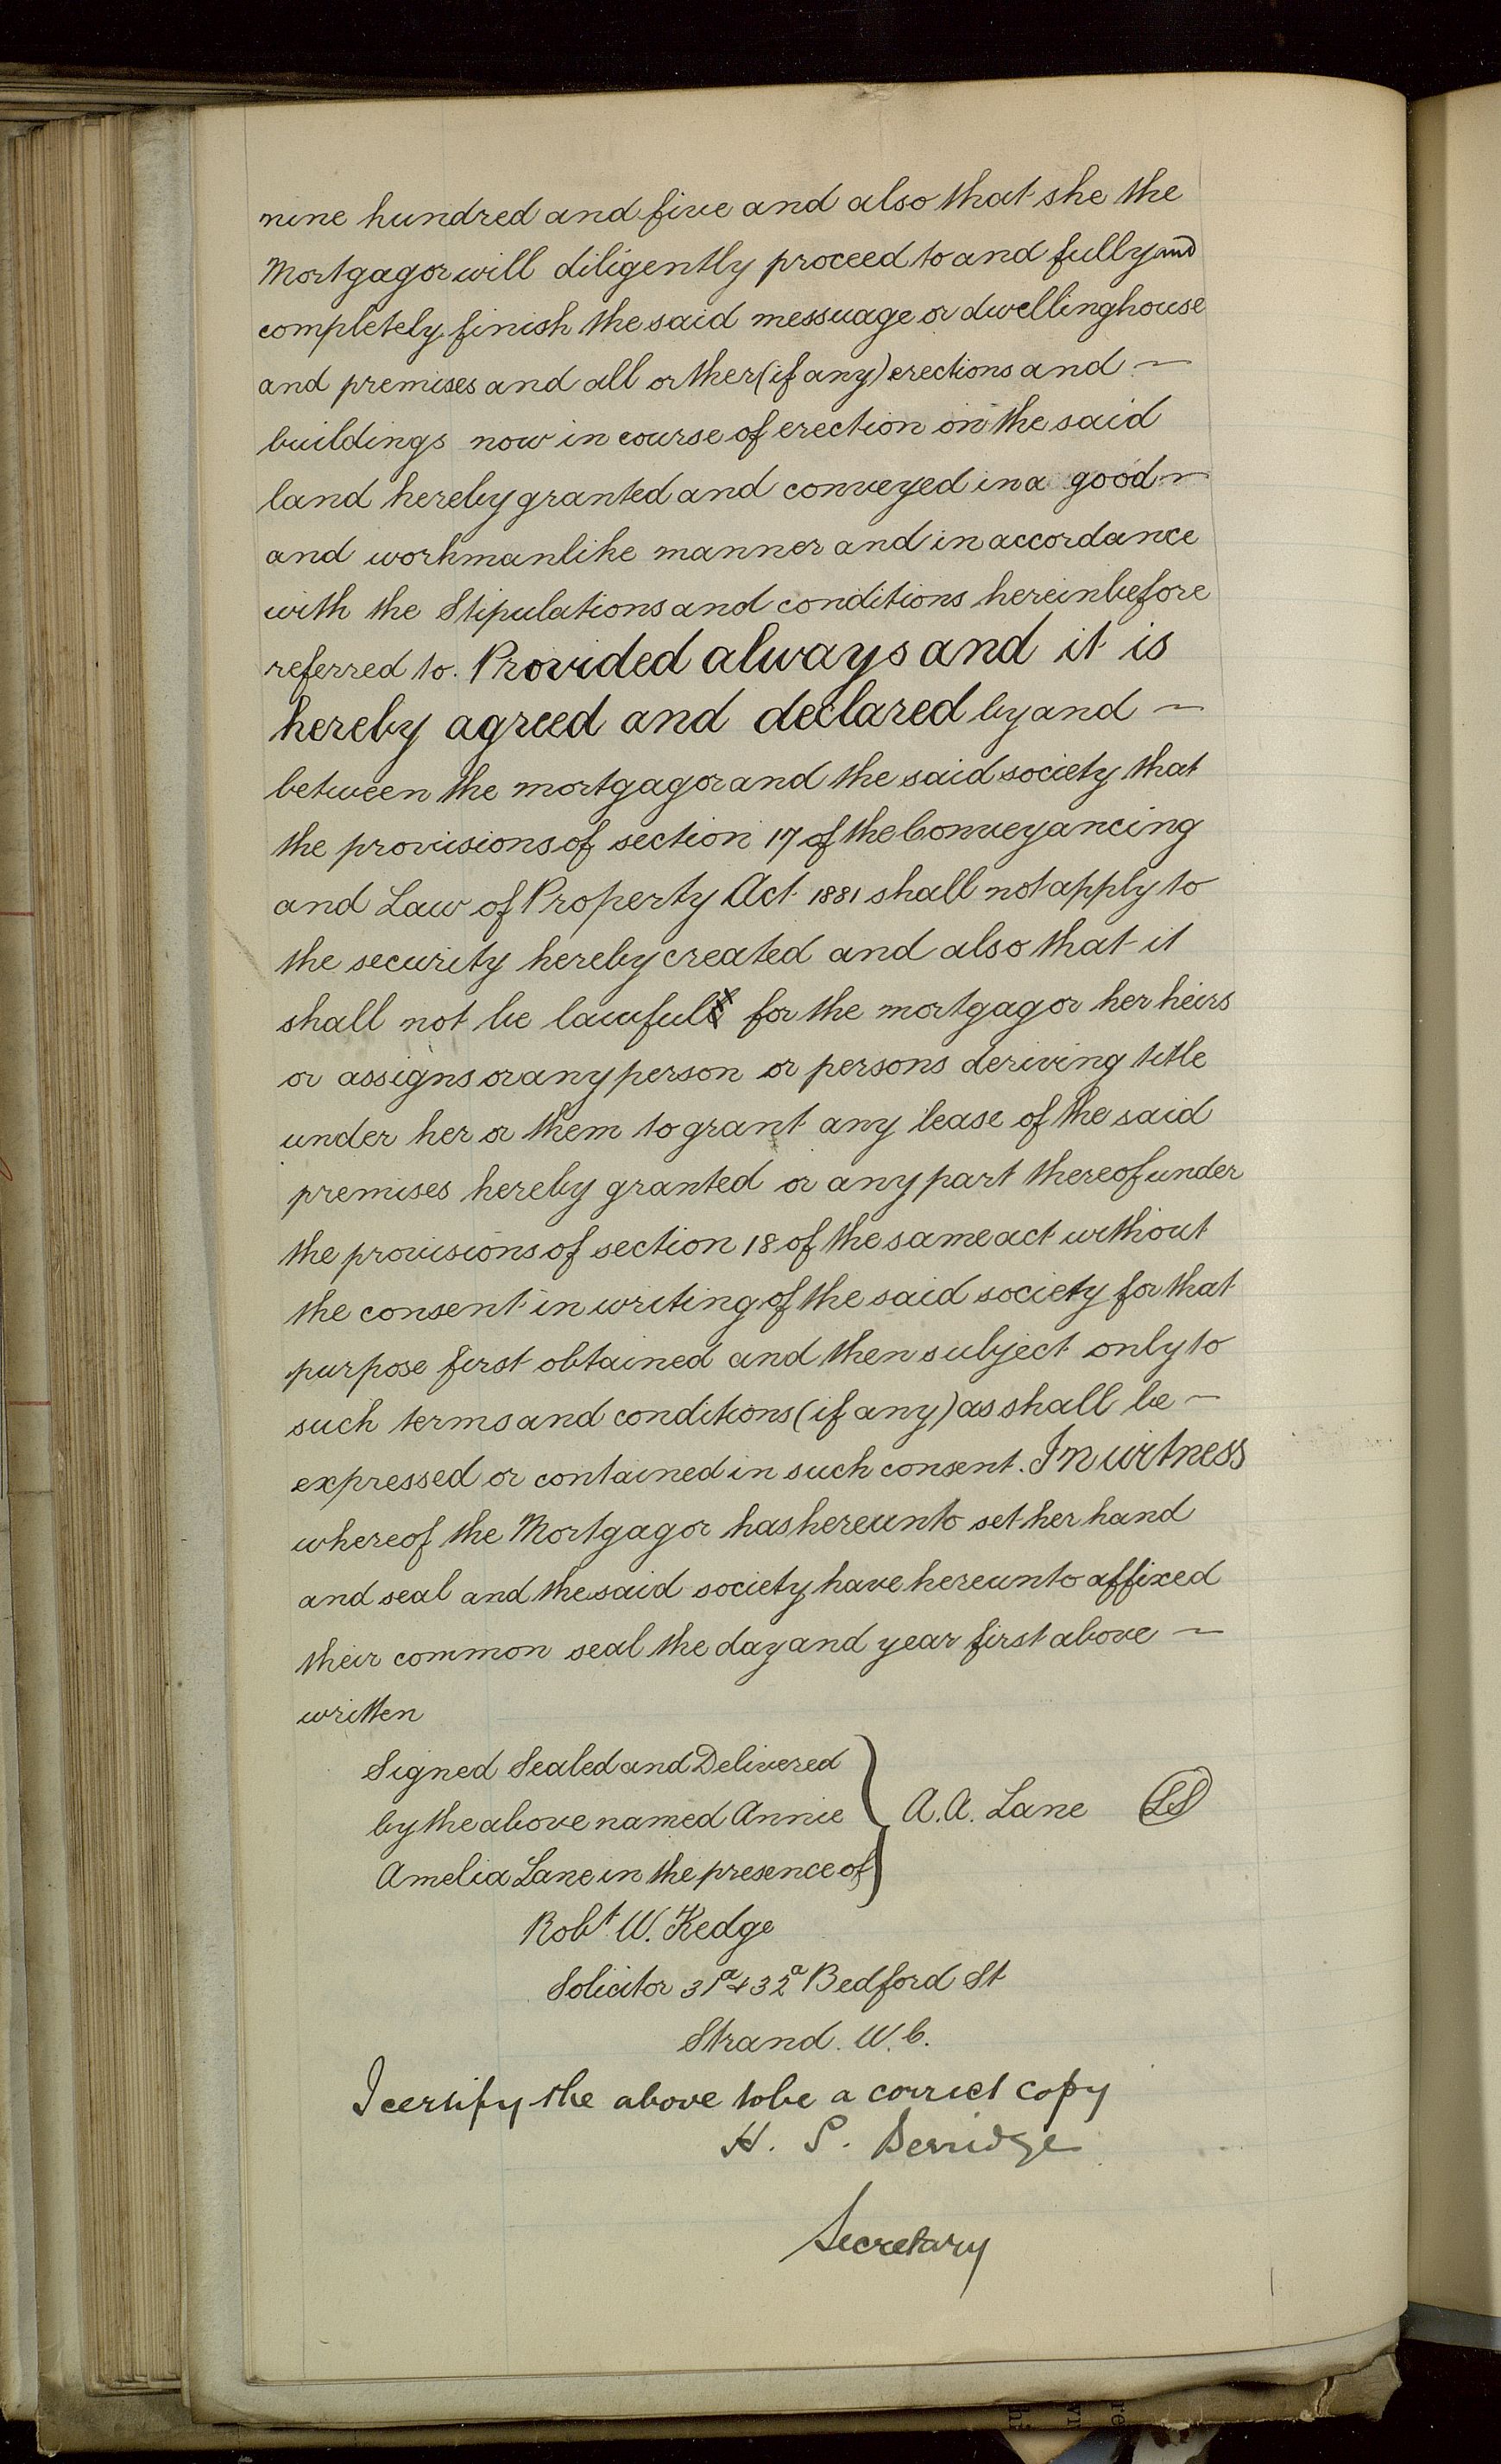 nine hundred and five and also that she the
Mortgagor will diligently proceed to and fully and
completely finish the said messuage or dwellinghouse
and premises and all other (if any) erections and —
buildings now in course of erection on the said
land hereby granted and conveyed in a good —
and workmanlike manner and in accordance
with the Stipulations and conditions hereinbefore
referred to. Provided always and it is
hereby agreed and declared by and —
between the mortgagor and the said society that
the provisions of section 17 of the Conveyancing
and Law of Property Act 1881 shall not apply to
the security hereby created and also that it
shall not be lawful for the mortgagor her heirs
or assigns or any person or persons deriving title
under her or them to grant any lease of the said
premises hereby granted or any part thereof under
the provisions of section 18 of the same act without
the consent in writing of the said society for that
purpose first obtained and then subject only to
such terms and conditions (if any) as shall be —
expressed or contained in such consent. In witness
whereof the Mortgagor has hereunto set her hand
and seal and the said society have hereunto affixed
their common seal the day and year first above —
written
Signed Sealed and Delivered
by the above named Annie } A. A. Lane LS
Amelia Lane in the presence of
Robt W. Kedge
Solicitor 31a & 32a Bedford St
Strand. W.C.
I certify the above to be a correct copy
H. S. Berridge
Secretary